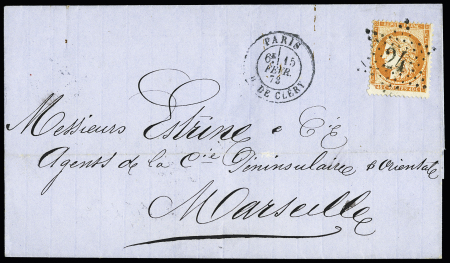 PARIS
6E 15
FEVR.
73
R. DE CLERY
24
Messieurs Estrine & Cie
Agents de la Cie Péninsulaire & Orientale
Marseille